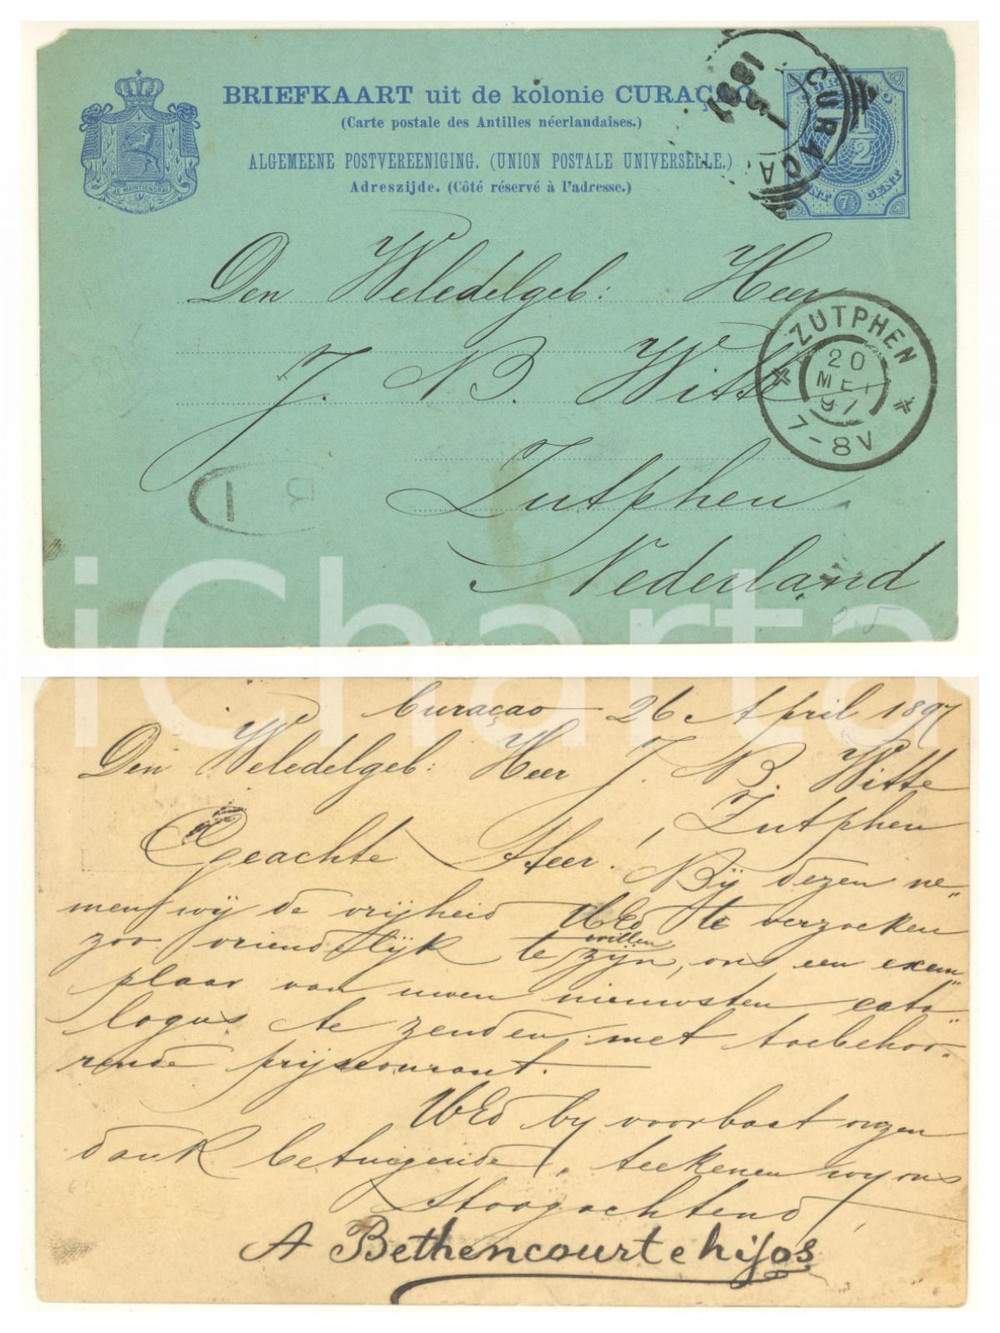 BRIEFKAART uit de kolonie CURAÇAO
(Carte postale des Antilles néerlandaises.)
ALGEMEENE POSTVEREENIGING. (UNION POSTALE UNIVERSELLE.)
Adreszijde. (Côté réservé à l'adresse.)
JE MAINTIENDRAI
CURAÇAO
1897
1/2
CENT 7½ CENT
Den Weledelgeb: Heer
J. N. B. Witte
Zutphen
Nederland
ZUTPHEN
20
MEI
97
7-8V
1
iCharta
Curaçao 26 April 1897
Den Weledelgeb: Heer J. N. B. Witte
Zutphen
Geachte Heer! Bij dezen ne"
men wij de vrijheid UWEd te verzoeken
zoo vriendelijk te willen zijn, ons een exem"
plaar van uwen nieuwsten cata"
logus te zenden met toebehoo-
rende prijscourant.
UWEd by voorbaat onzen
dank betuigende, teekenen wy ons
Hoogachtend,
A Bethencourt e hijos